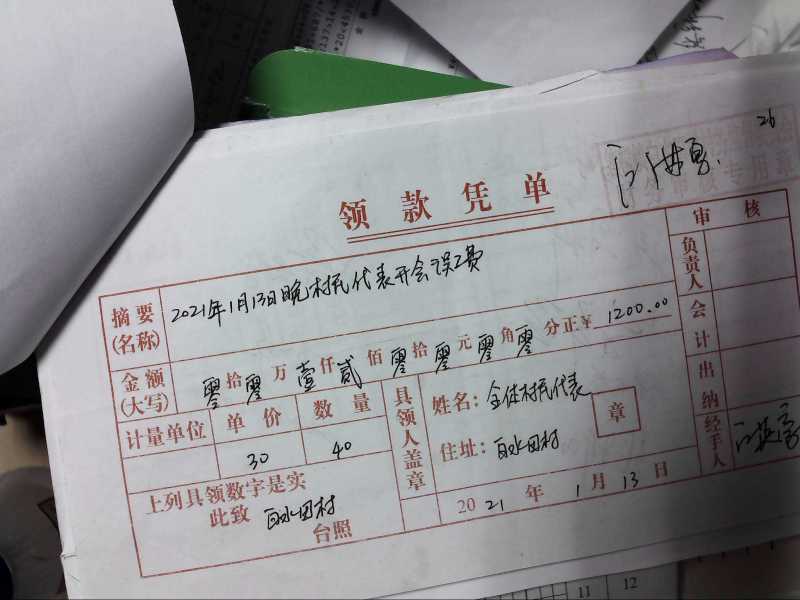 26
领款凭单
审核
摘要(名称) 2021年1月13日晚村民代表开会误工费
负责人
金额(大写) 零拾零万壹仟贰佰零拾零元零角零分正¥ 1200.00
会计
计量单位 单价 数量
30 40
具领人盖章
姓名：全体村民代表
章
住址：白水田村
出纳
经手人
上列具领数字是实
此致 白水田村
台照
2021年1月13日
11 12